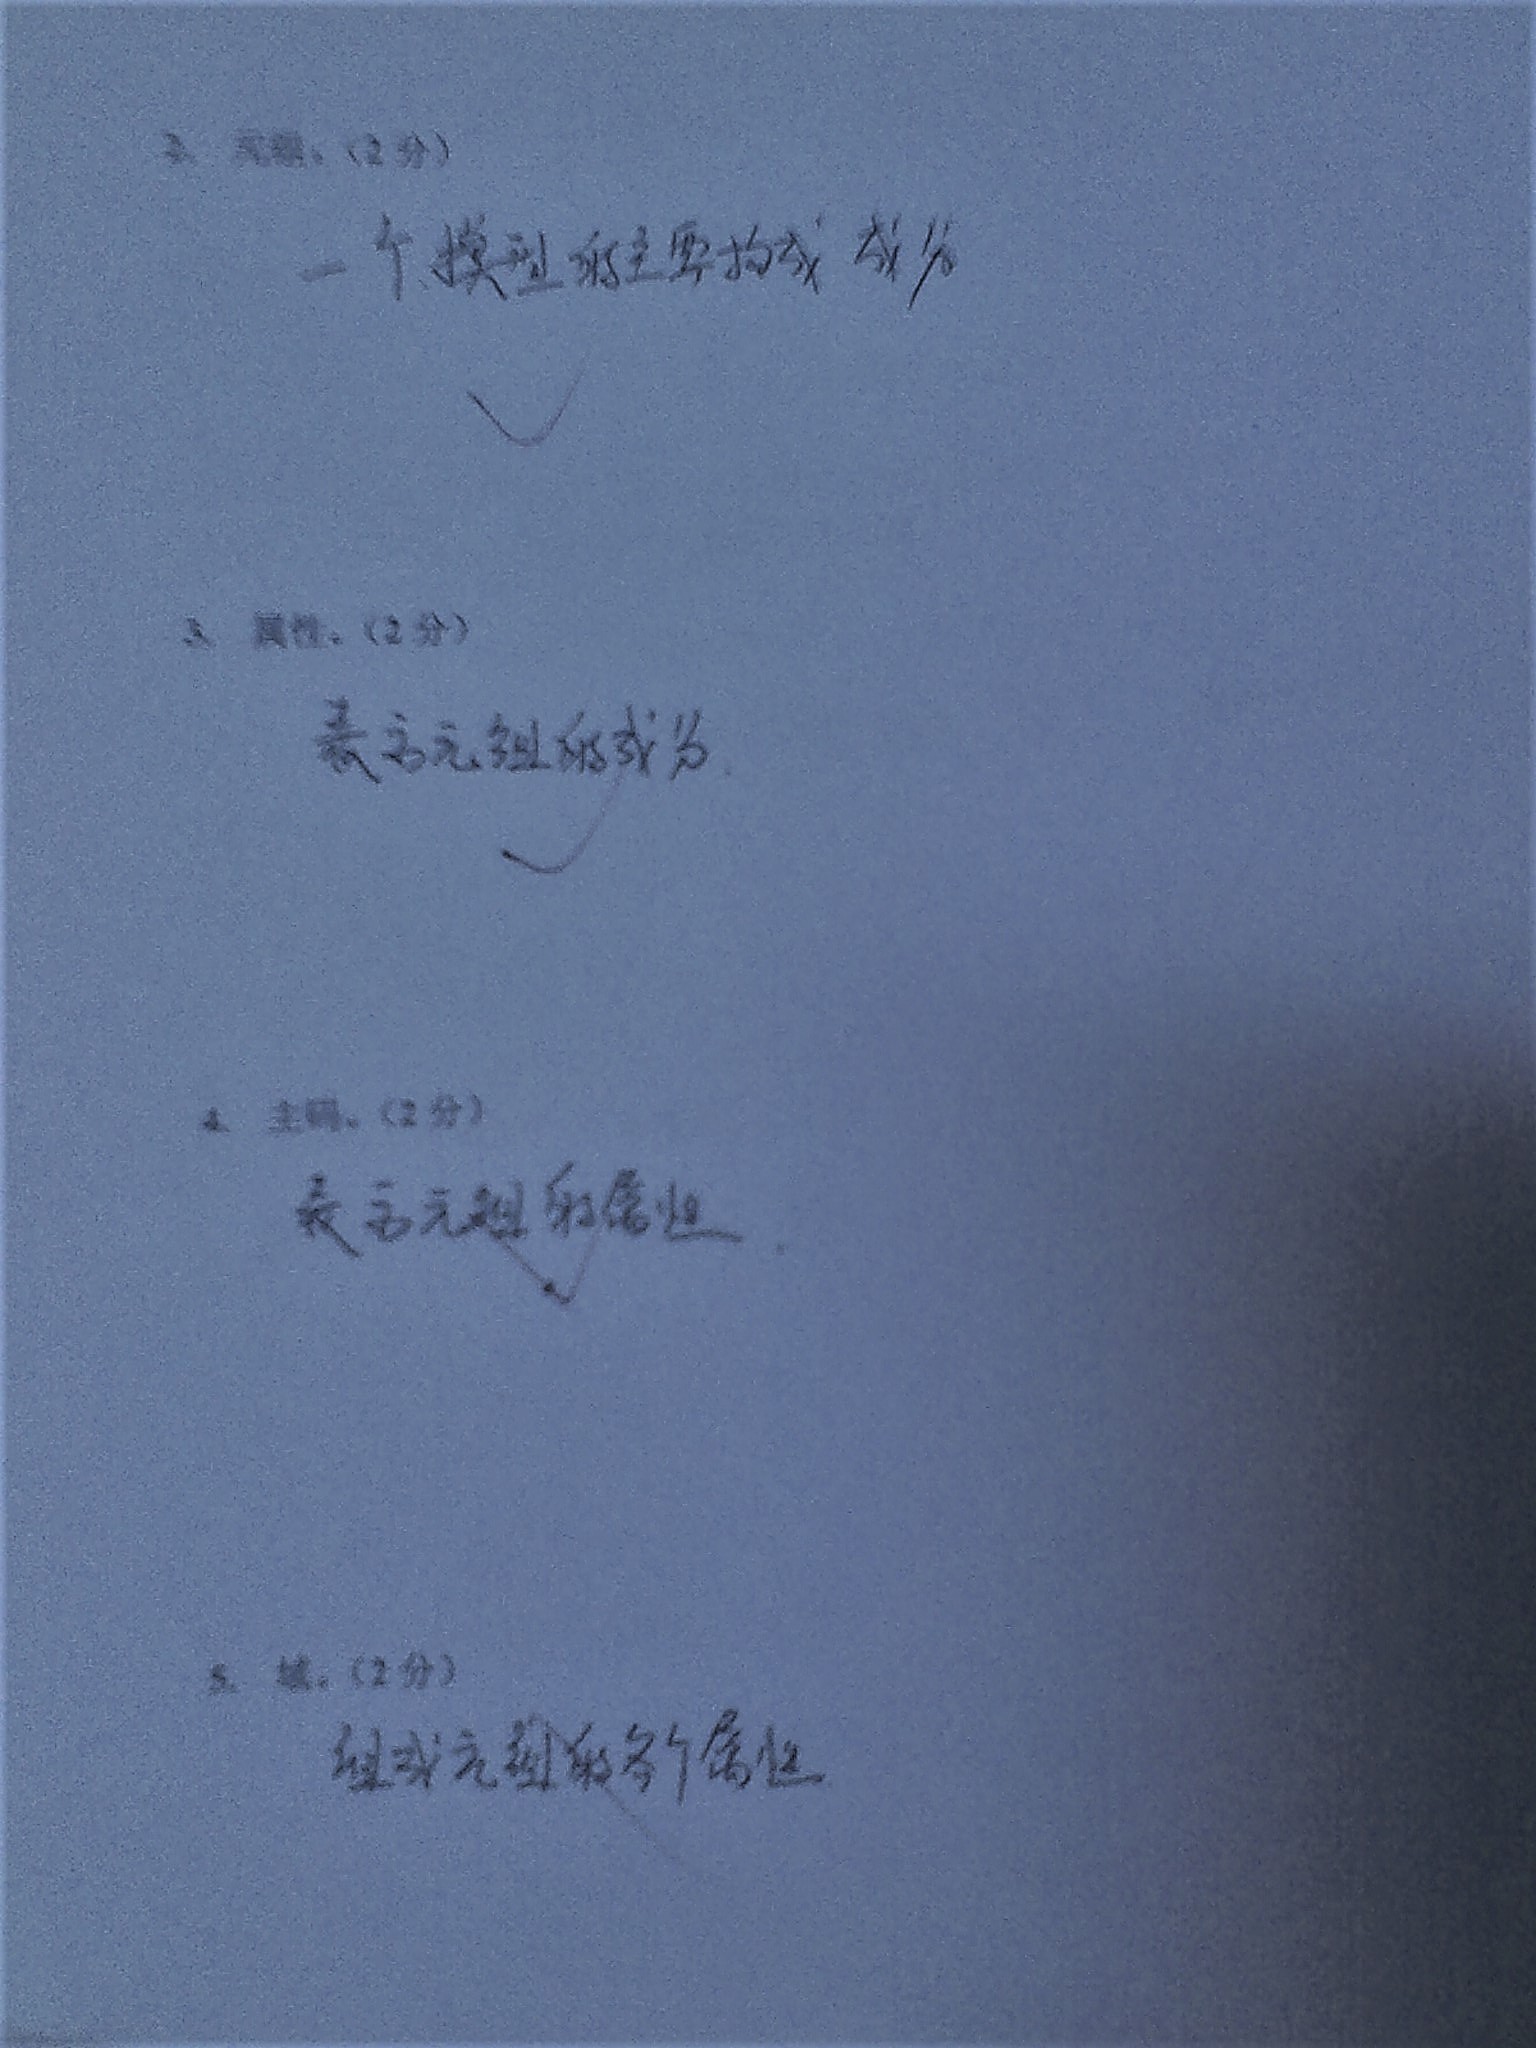 2. 元组。（2分）
一个模型的主要构成 成分
3. 属性。（2分）
表示元组的成分.
4. 主码。（2分）
表示元组的属性.
5. 域。（2分）
组成元组的各个属性